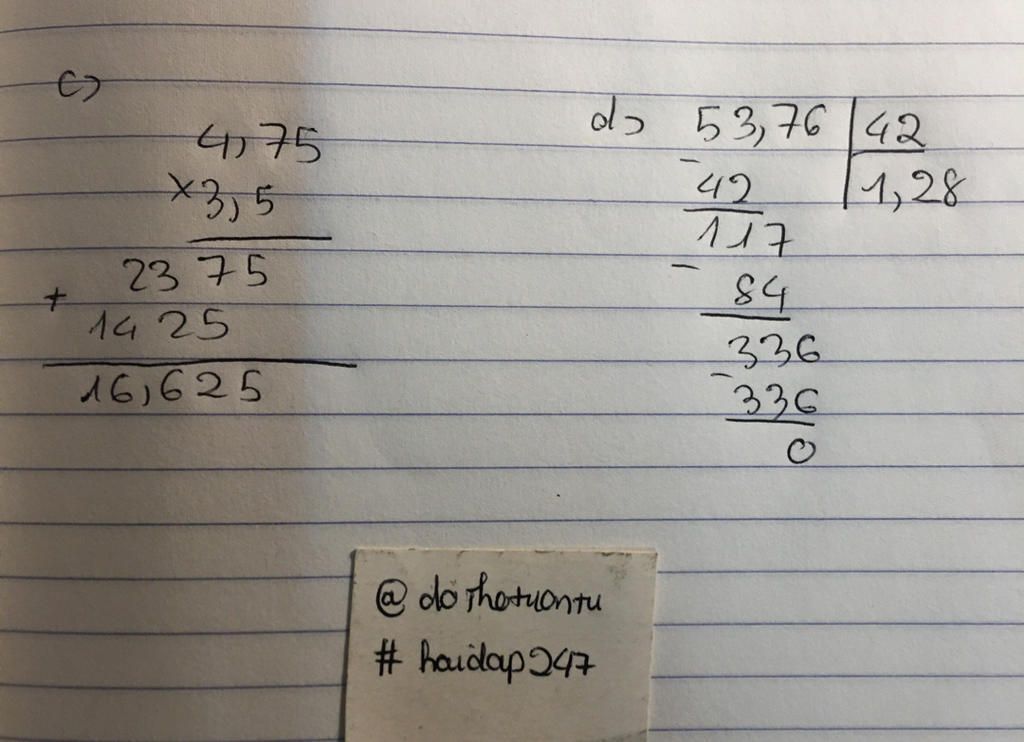 c)
4,75
× 3,5
2375
+
1425
16,625
d) 53,76 | 42
- 42 | 1,28
117
- 84
336
- 336
0
@
# hoidap247